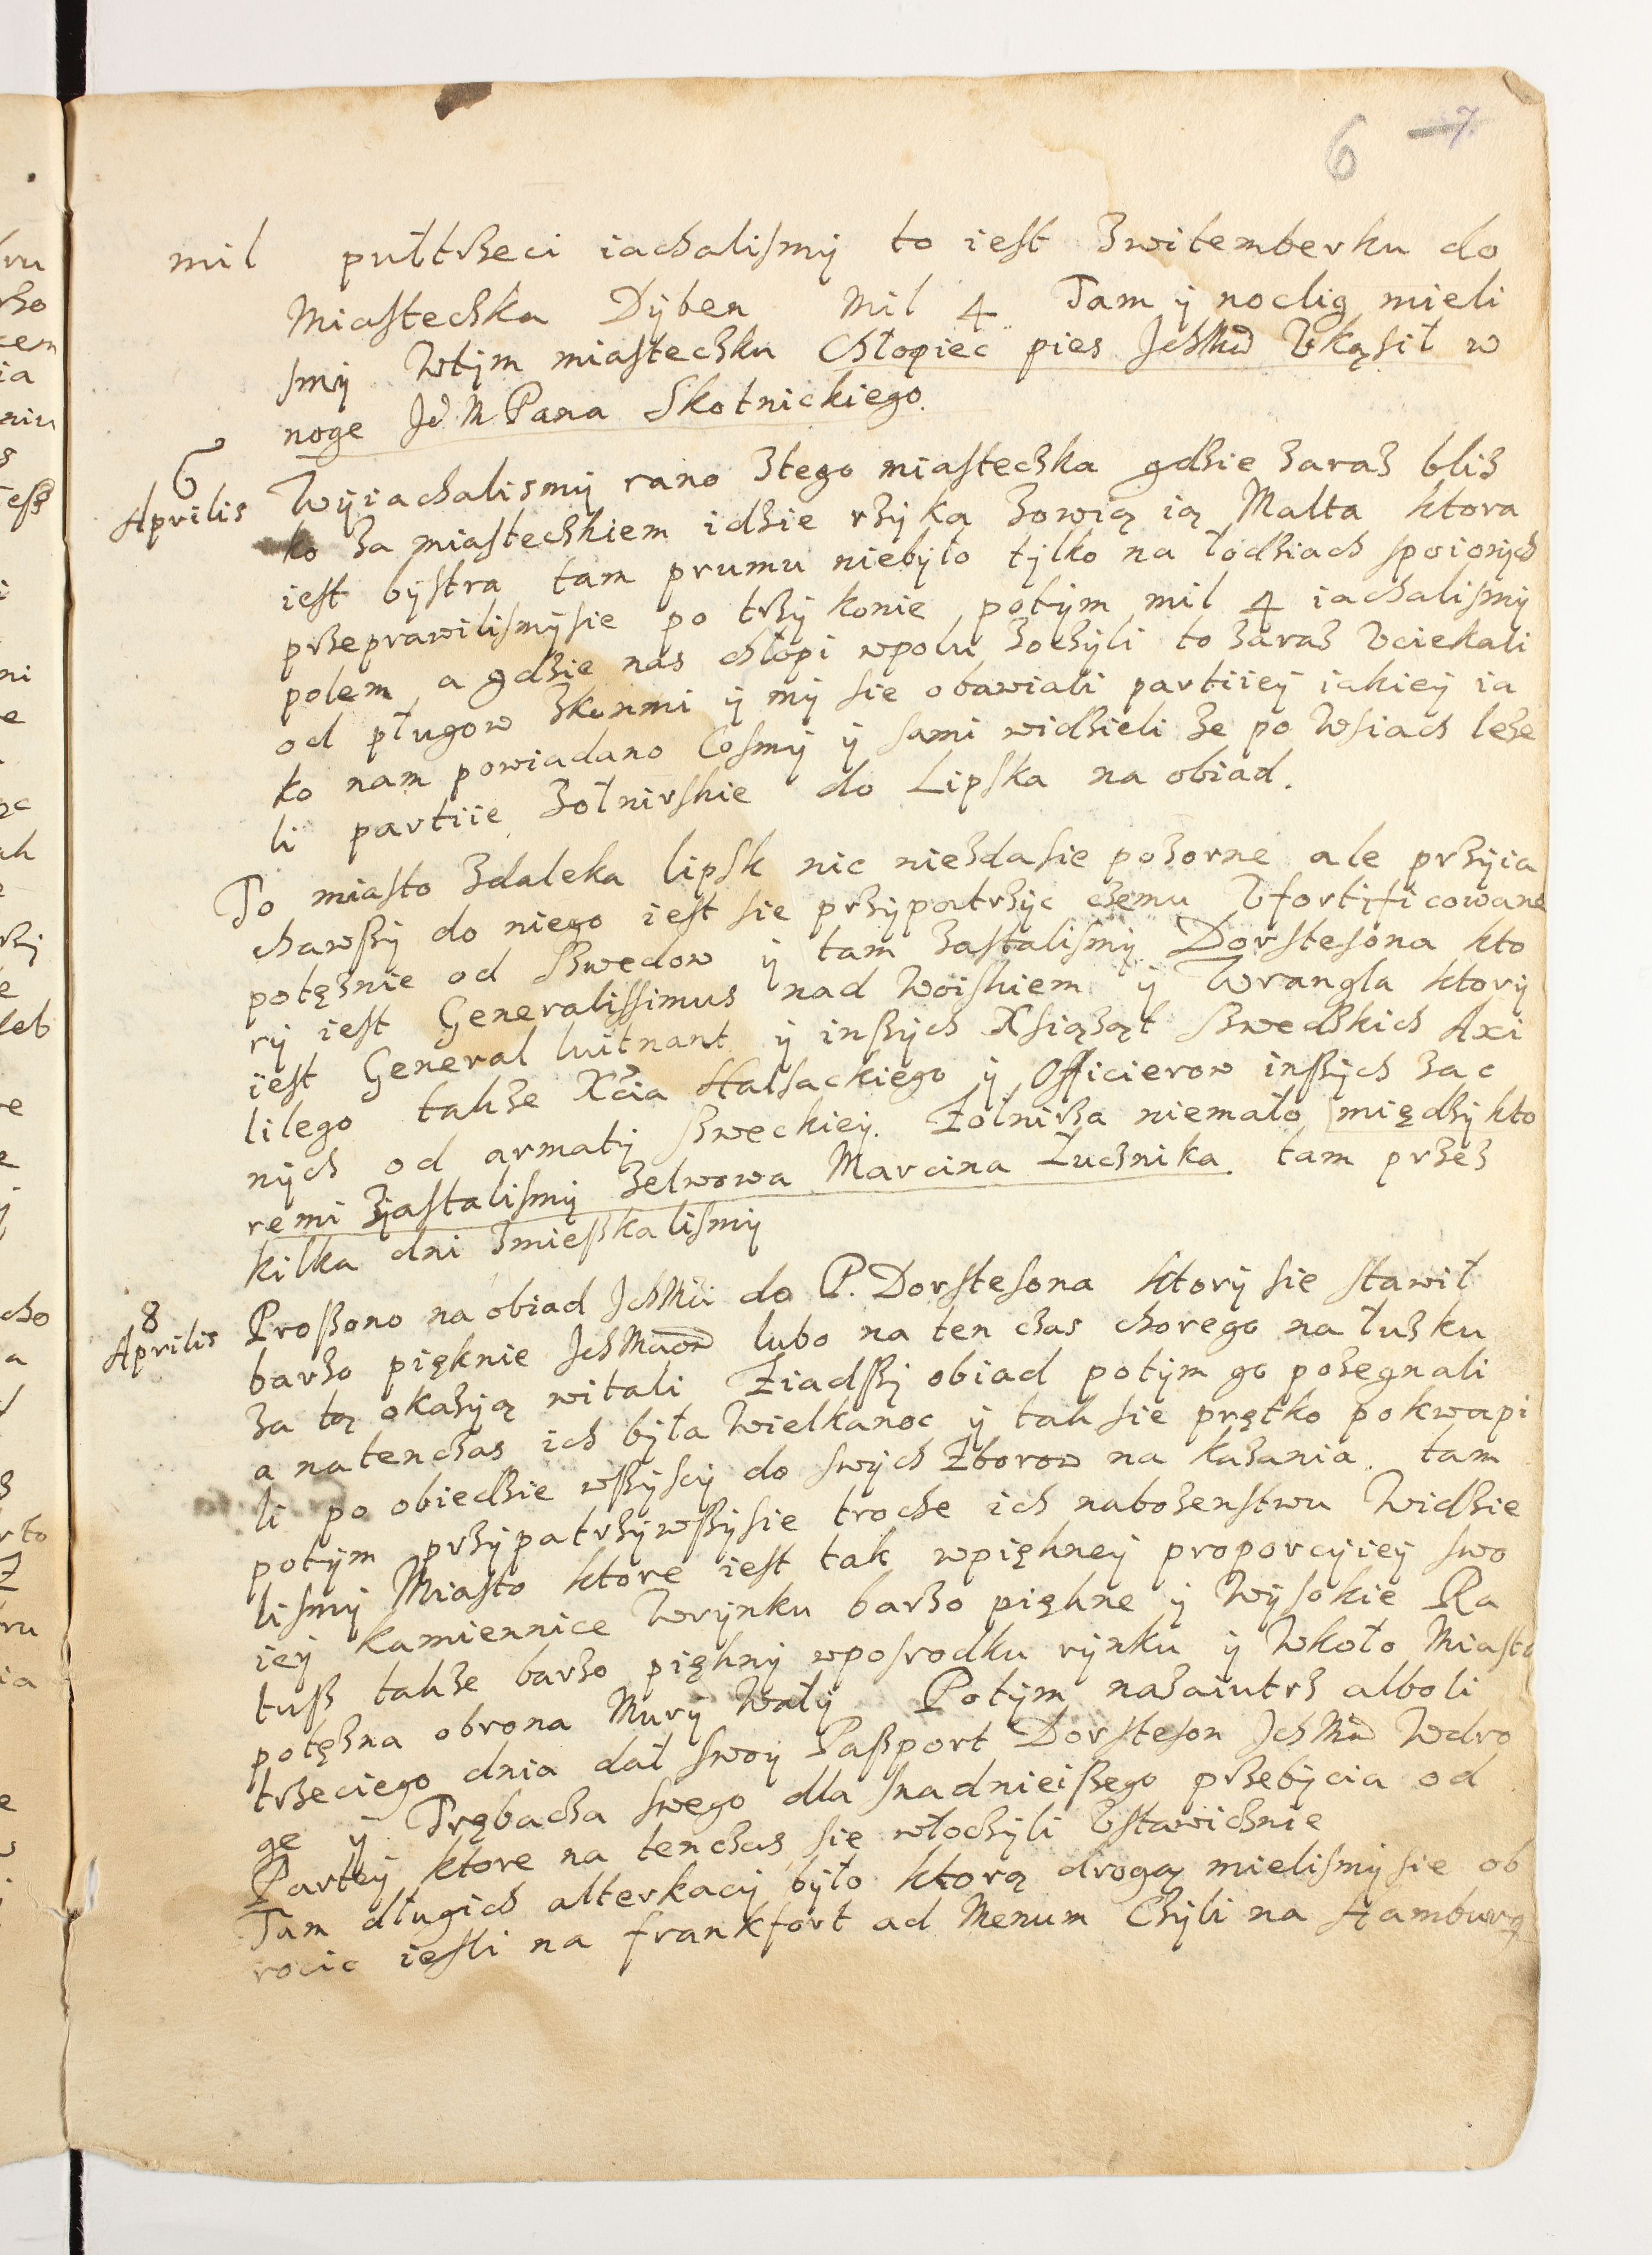 6 7
mil pułtrzeci iachalismÿ to iest zwitemberku do
Miasteczka Dÿben Mil 4 Tam ÿ noclig mieli
smÿ Wtÿm miasteczku Chłopiec pies IchMċ Vkąsił w
noge Jċ M Pana Skotnickiego.
6
Aprilis Wÿiachalismÿ rano ztego miasteczka gdzie zaraz bliz
ko za miasteczkiem idzie rzÿka zowią ią Malta ktora
iest bÿstra tam prumu niebÿło tÿlko na łodziach spoionÿch
przeprawilismÿsie po trzÿ konie potÿm mil 4 iachalismÿ
polem a gdzie nas chłopi wpolu zoczÿli to zaraz Vciekali
od pługow zkonmi ÿ mÿ sie obawiali partiieÿ iakieÿ ia
ko nam powiadano Cosmÿ ÿ sami widzieli ze po Wsiach leze
li partiie zołnirskie do Lipska na obiad.
To miasto zdaleka lipsk nic niezdasie pozorne ale przÿia
chawszÿ do niego iest sie przÿpatrzÿc czemu Vfortificowane
potęznie od Szwedow ÿ tam zastalismÿ Dorstesona kto
rÿ iest Generalissimus nad Woiskiem ÿ Wrangla ktorÿ
iest General luitnant ÿ inszÿch Xsiąząt szwedzkich Axi
lilego takze Xcia Halsackiego ÿ Officierow inszÿch zac
nÿch od armatÿ szweckieÿ. Zołnirza niemało międzÿ kto
remi zastalismÿ zelwowa Marcina Łucznika. tam przez
kilka dni zmieszkalismÿ
8
Aprilis Proszono na obiad IchMċi do P. Dorstesona ktorÿ sie stawił
barzo pięknie IchMciom lubo na ten czas chorego na łuzku
za tą okazÿią witali Ziadszÿ obiad potÿm go pozegnali
a natenczas ich bÿła Wielkanoc ÿ tak sie prętko pokwapi
li po obiedzie wszÿscÿ do swÿch Zborow na kazania. tam
potÿm przÿpatrzÿwszÿsie troche ich nabozenstwu Widzie
lismÿ Miasto ktore iest tak wpiękneÿ proporcÿieÿ swo
ieÿ kamiennice Wrÿnku barzo piękne ÿ Wÿsokie Ra
tusz takze barzo pięknÿ wposrodku rÿnku ÿ Wkoło Miasta
potęzna obrona Murÿ Wałÿ Potÿm nazaiutrz alboli
trzeciego dnia dał swoÿ Paszport Dorsteson IchMċ Wdro
ge ÿ Trębacza swego dla snadnieiszego przebÿcia od
Parteÿ ktore na tenczas sie włoczÿli Vstawicznie
Tam długich alterkacÿ bÿło ktorą drogą mielismÿsie ob
rocic iesli na frankfort ad Menum Czÿli na Hamburg